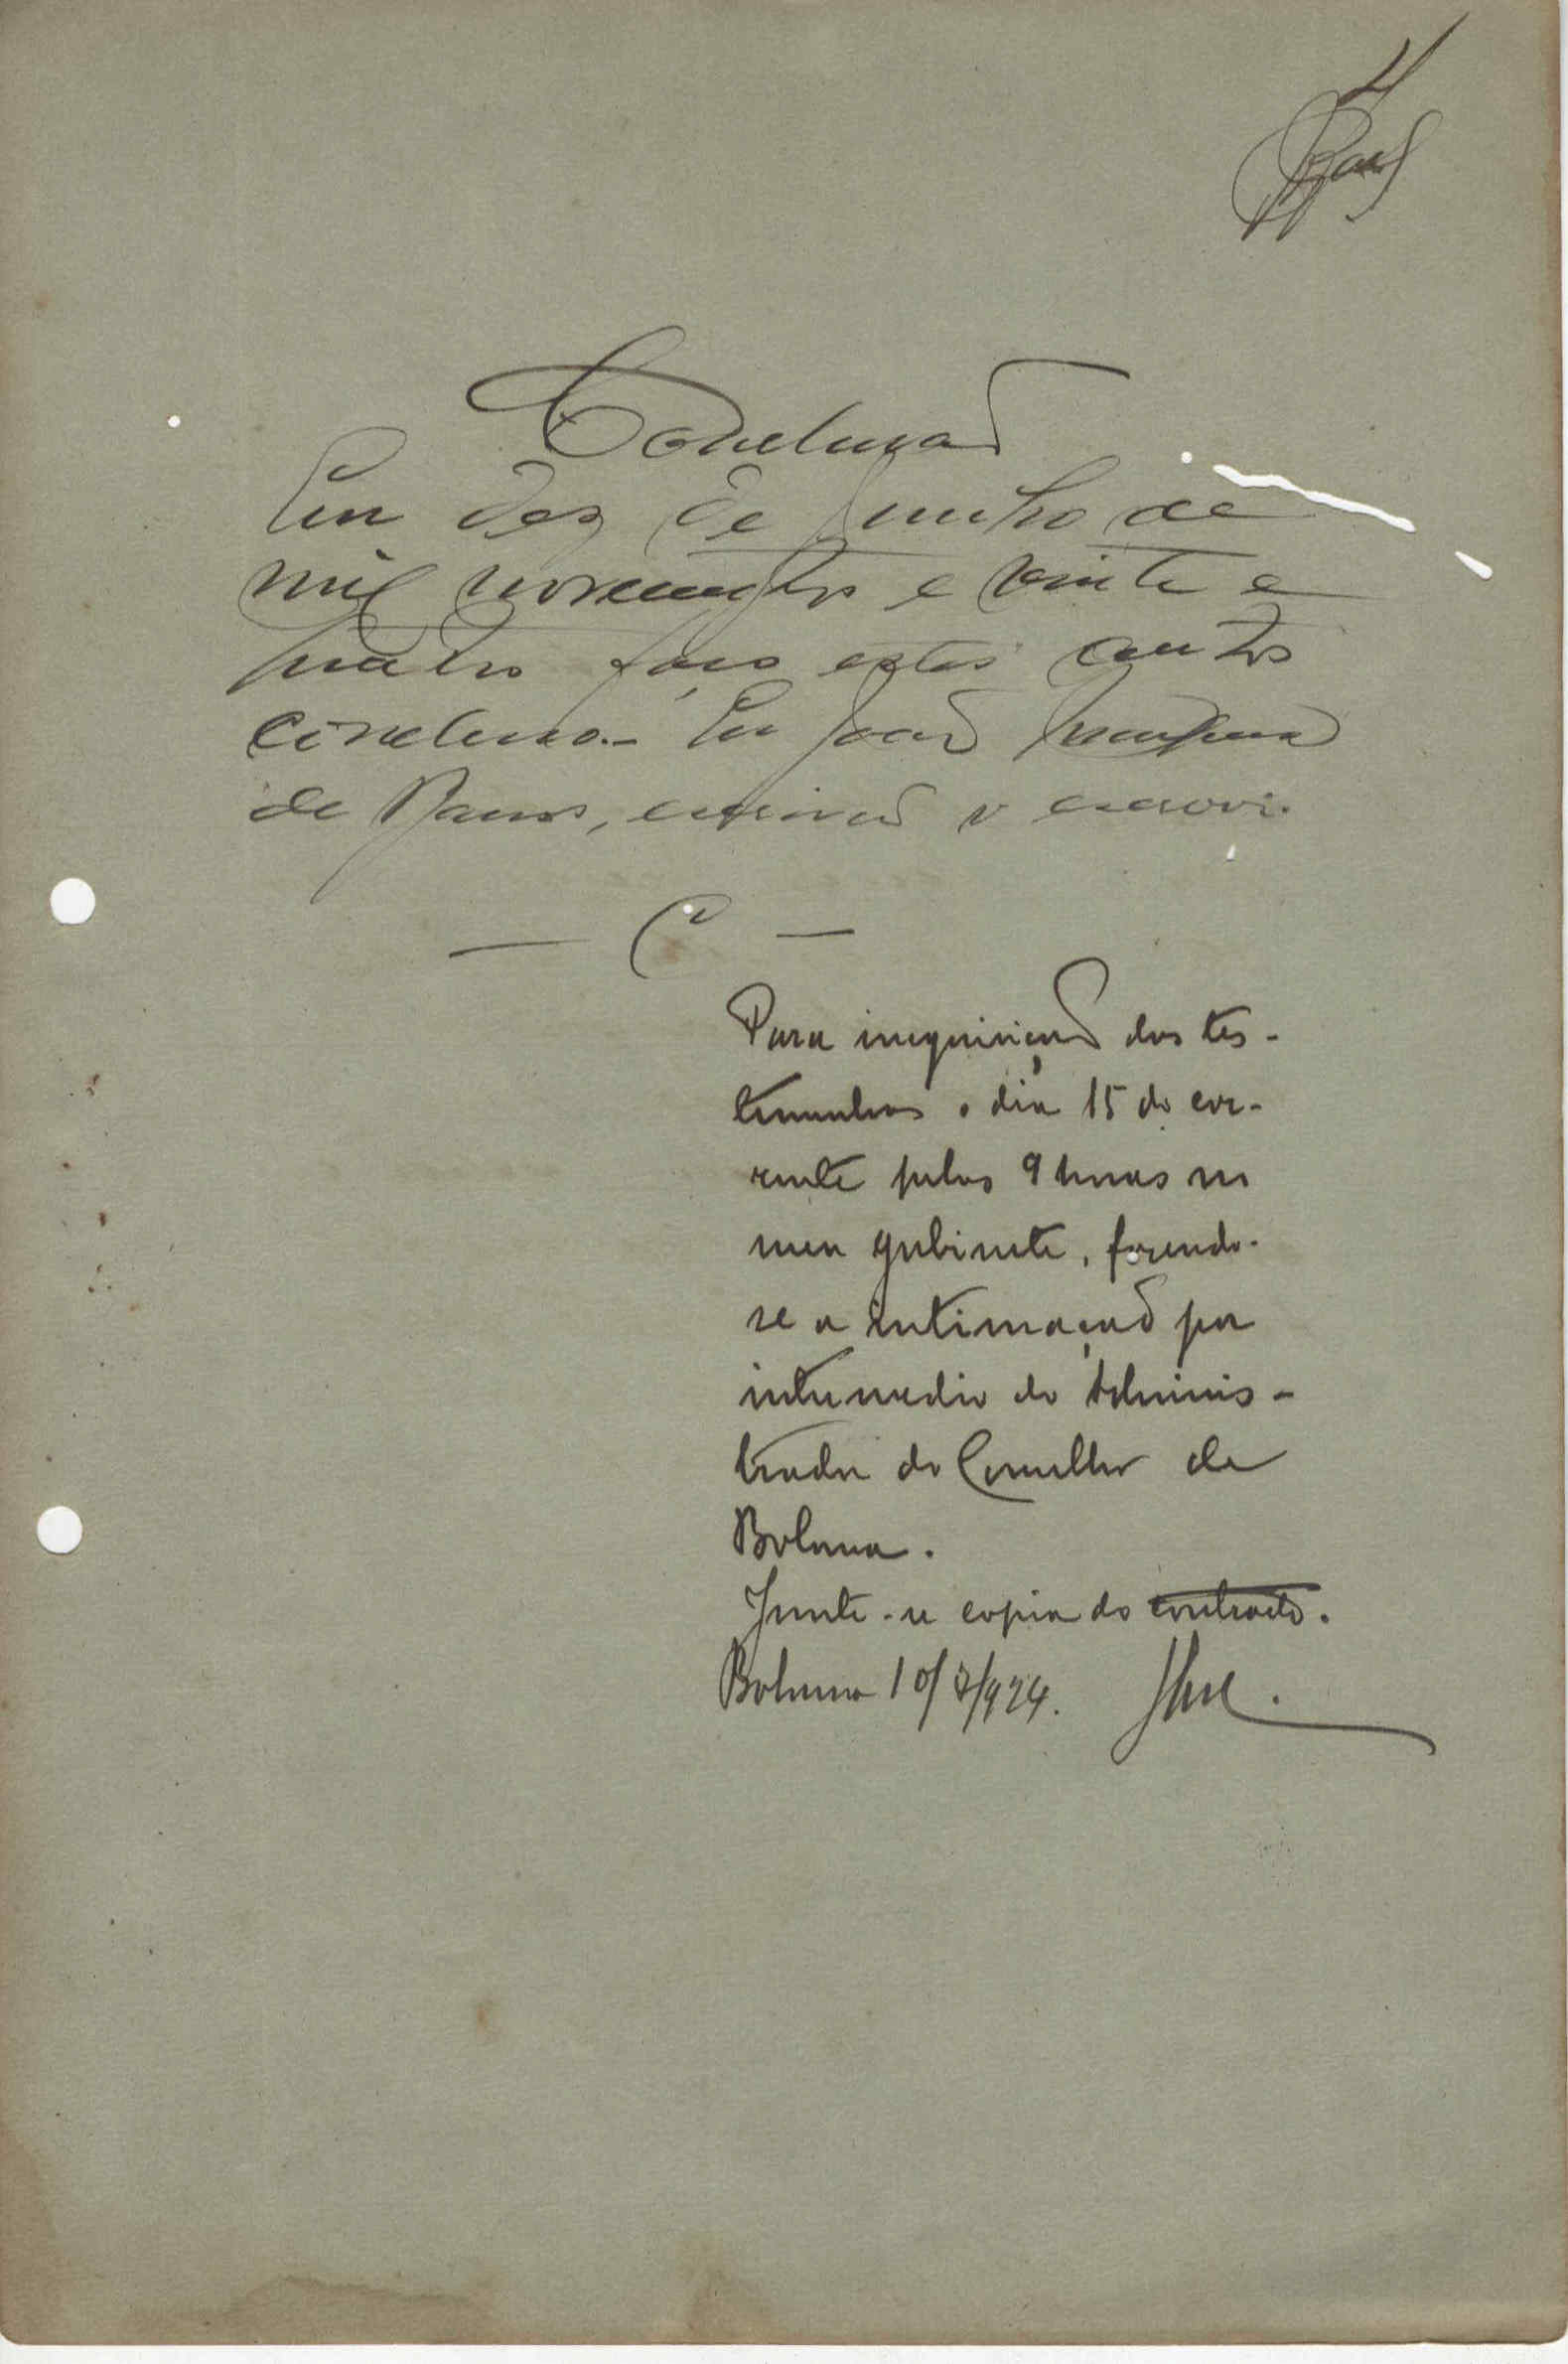 4
Conclusão
Em dez de Junho de
mil novecentos e vinte e
quatro faço estes autos
conclusos. Eu João
de Barros, escrivão o escrevi.
— C —
Para inquirição das tes-
temunhas o dia 15 do cor-
rente pelas 9 horas no
meu gabinete, fazendo-
se a intimação por
intermedio do Adminis-
trador do Concelho de
Bolama.
Junte-se copia do contracto.
Bolama 10/7/924.